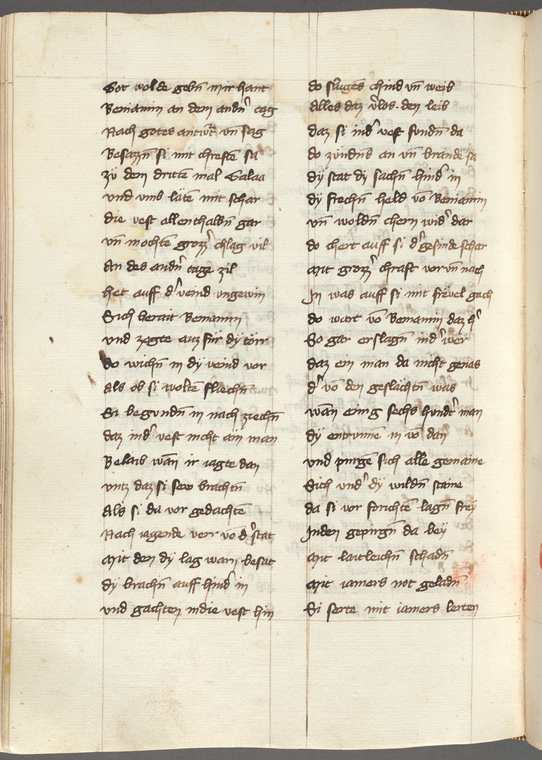 Got wolde gebn mir hant
Beniamin an dem andn̄ tag
Nach gotes antwt̄ vn̄ sag
Besazzn̄ si mit chrefte sa
zu dem dritten mal Galaa
und vmb laitē mit schar
die vest allenthalbn̄ gar
vn̄ mochte grozz̄ chlag vil
An des andn̄ tages zil
het auff d̄ veind vngewin
Sich berait Beniamin
und zogte auz für dy törr
do wichn̄ in dy veind vor
als ob si woltē fliechn̄
Si begundn̄ in nach ziechn̄
daz ind̄ vest nicht ain man
Belaib wan̄ ir iagte dan
untz daz si seu brachtn̄
Als si da vor gedachte
Nach iagende verr vō d̄ stat
Mit den dy lag warn besat
dy brachn̄ auff hind̄ in
und gachten indie vest hin
do slugēs chind vn̄ weib
Alles daz v̄los den leib
daz si ind̄ vest fundn̄ da
do zündns an vn̄ brande sa
dy stat dy sachn̄ hind̄ in
dy frechn̄ held vō Beniamin
vn̄ woldn̄ chern wid̄ dar
do chert auff si d̄ gesinde schar
Mit grozz̄ chraft vorvn̄ nach
In was auff si mit frävel gach
do wart vō Beniamin daz h̄
So gar erslagn̄ ind̄ wer
daz ein man da nicht genas
d̄ vō den geslächtn̄ was
wan̄ ainig sechs hundt̄ man
dy entrunnē in vō dan
und pargē sich alle gemaine
Sich und̄ dy wildn̄ staine
da si vor forichtē lagn̄ frey
Inden gepirgn̄ da bey
Mit laitleichn̄ schadn̄
Mit iamers not geladn̄
Si ferte mit iamers lerten